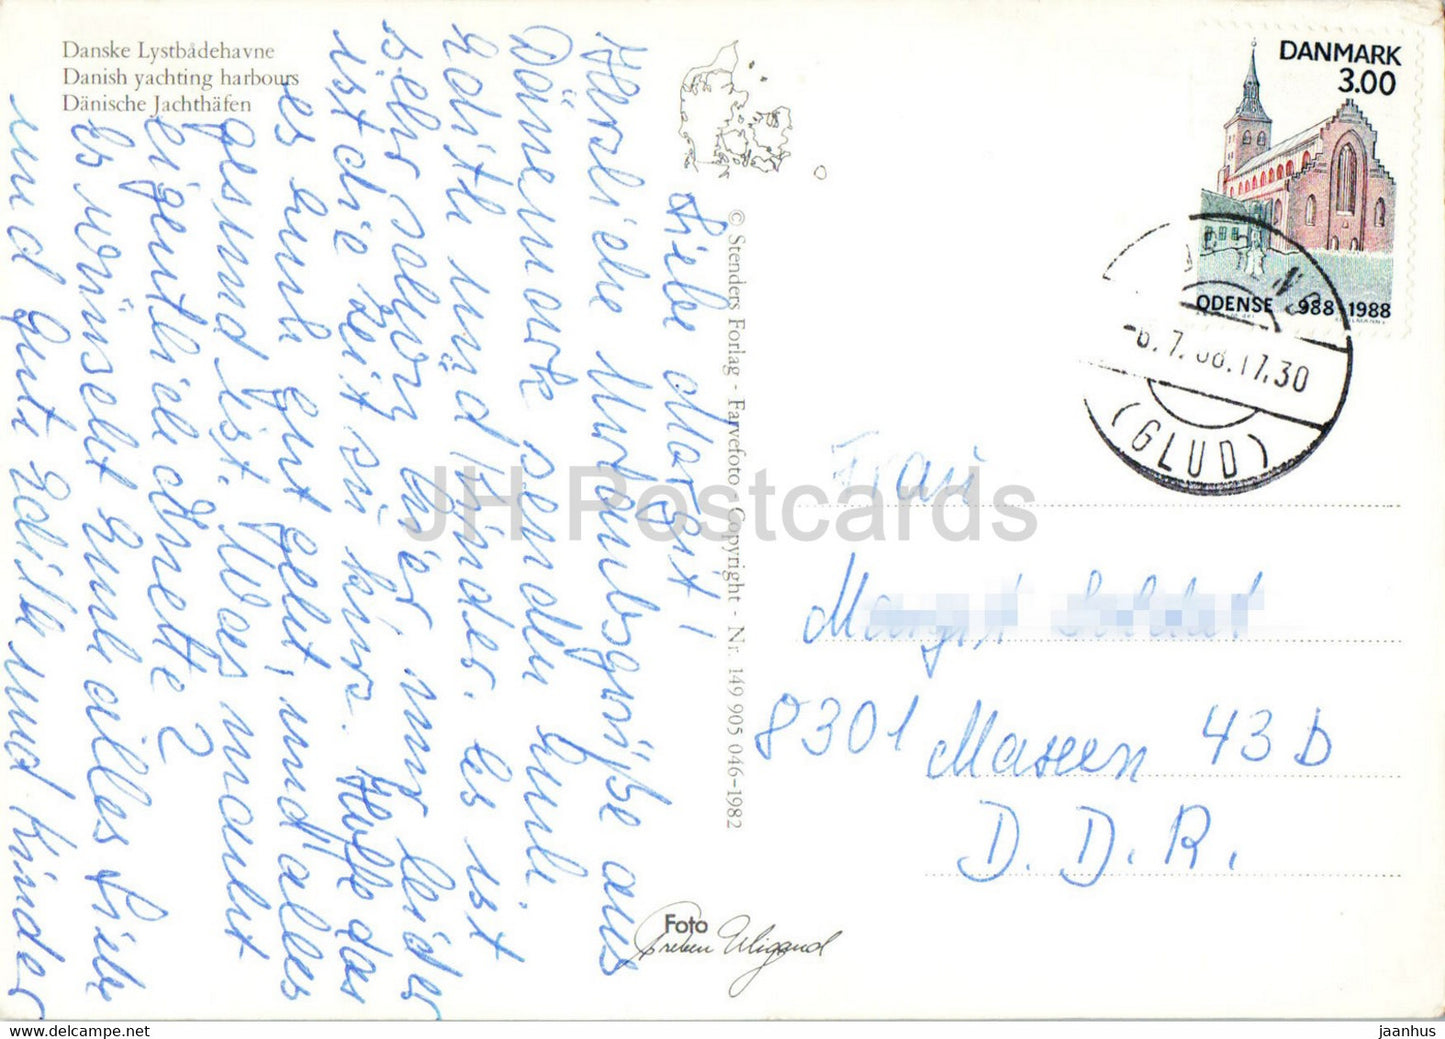 Danske Lystbådehavne
Danish yachting harbours
Dänische Jachthäfen
Liebe Margit!
Herzliche Urlaubsgrüße aus
Dänemark senden Euch
Edith und Kinder. Es ist
sehr schön hier nur leider
ist die Zeit zu kurz. Hoffe das
es Euch gut geht, und alles
gesund ist. Was macht
eigentlich Anette?
Es wünscht Euch alles Liebe
und Gute Edith und Kinder
© Stenders Forlag - Farvefoto - Copyright - Nr. 149 905 046-1982
Foto
Preben Wigand
DANMARK
3.00
ODENSE 988-1988
-6.7.88.17.30
(GLUD)
Frau
8301 Maxen 43 D
D. D. R.
JH Postcards
jaanhus
© delcampe.net